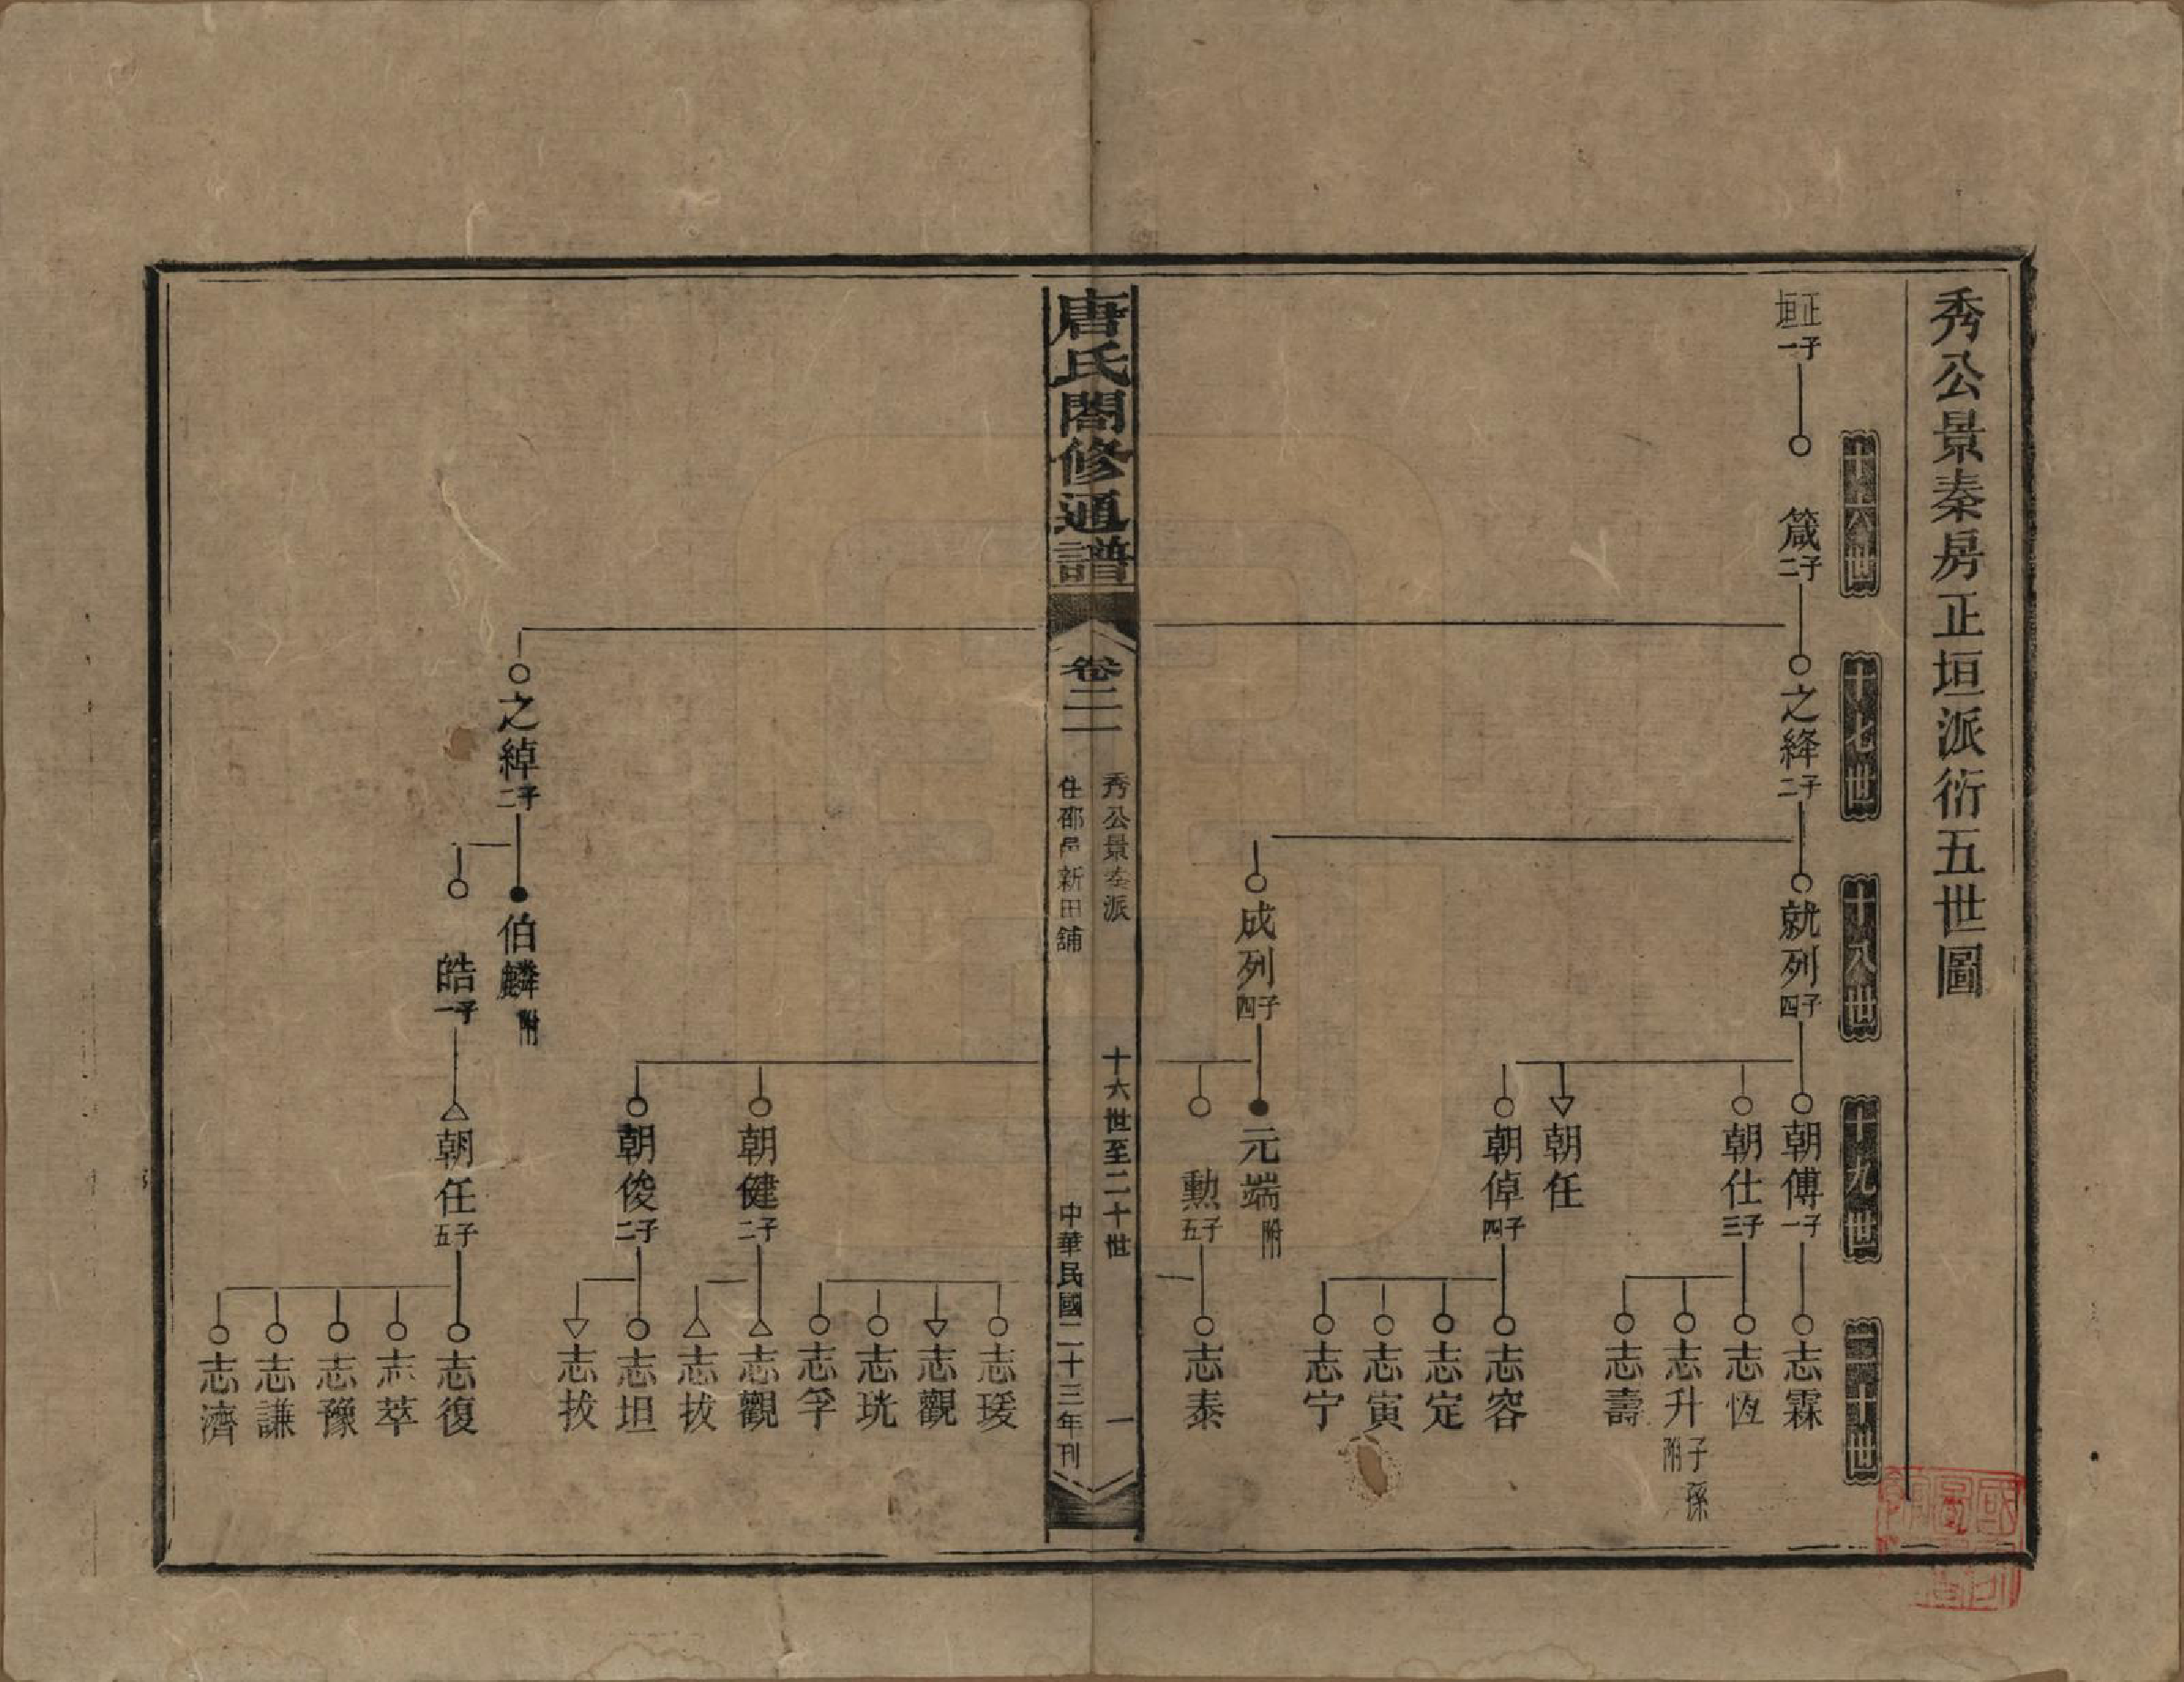 秀公景秦房正垣派衍五世圖
十六世
十七世
十八世
十九世
二十世
正垣 子一
箴 子二
之絳 子二
就列 子四
朝傅 子一
志霖
朝仕 子三
志恆
志升 子孫附
志壽
朝任
朝倬 子四
志容
志定
志寅
志宁
成列 子四
元端 附
勳 子五
志泰
唐氏閤修通譜
卷二二
秀公景秦派
住邵邑新田舖
十六世至二十世
一
中華民國二十三年刊
志瑗
志觀
志珖
志孚
朝健 子二
志觀
志拔
朝俊 子二
志坦
志拔
之綽 子二
伯麟 附
皓 子一
朝任 子五
志復
志萃
志豫
志謙
志濟